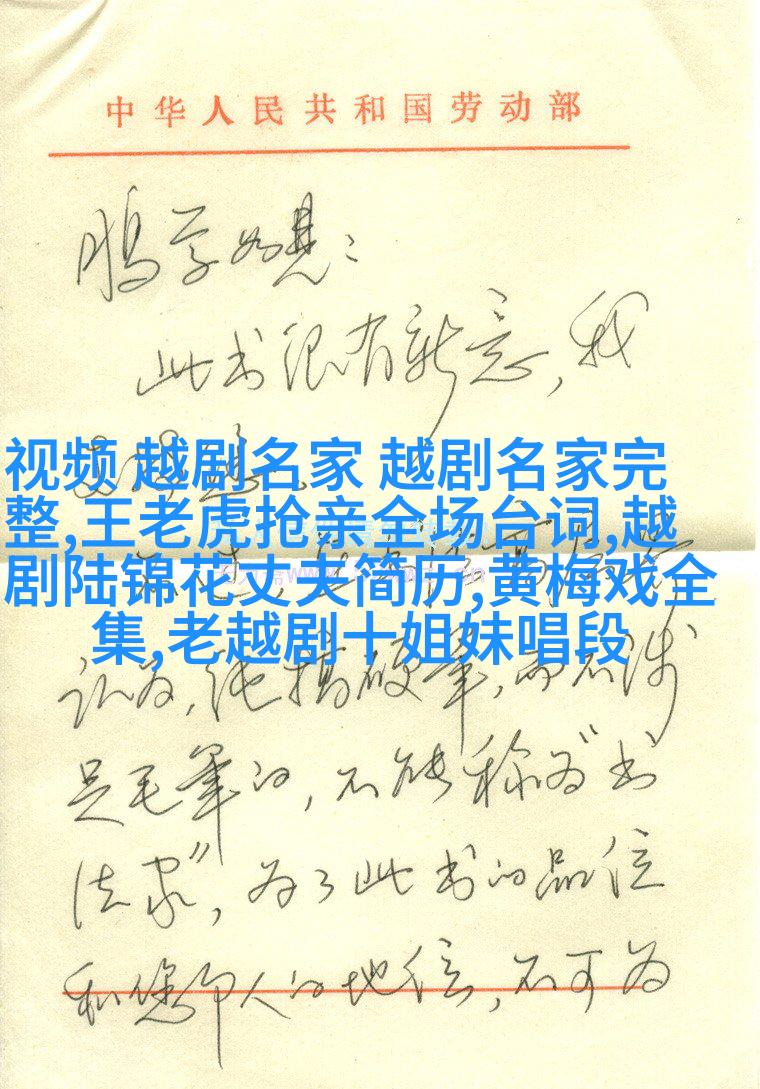 中华人民共和国劳动部
鹏学如晤：
此书很有新意，我
视频 越剧名家 越剧名家完
整,王老虎抢亲全场台词,越
剧陆锦花丈夫简历,黄梅戏全
集,老越剧十姐妹唱段
认为，纯搞硬笔，而不涉
足毛笔的，不能称为“书
法家”，为了此书的品位
和您个人的地位，不可为